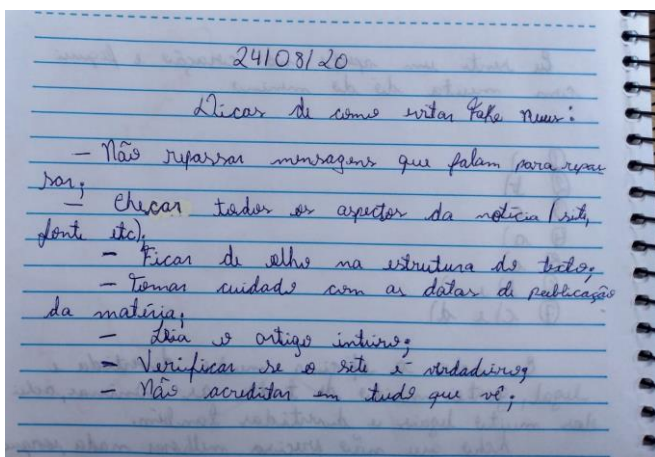 24/08/20
Dicas de como evitar Fake News:
- Não repassar mensagens que falam para repas
sar;
- Checar todos os aspectos da notícia (site,
fonte etc);
- Ficar de olho na estrutura do texto;
- Tomar cuidado com as datas de publicação
da matéria;
- Leia o artigo inteiro;
- Verificar se o site é verdadeiro;
- Não acreditar em tudo que vê;